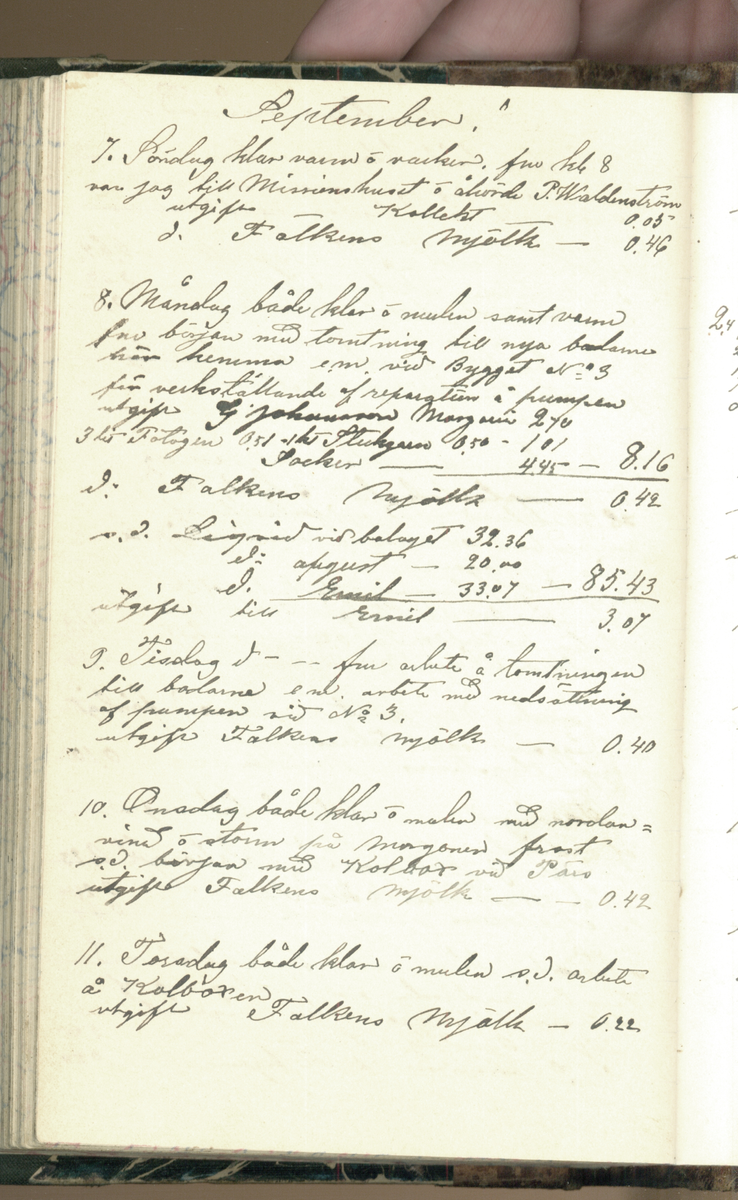 September.
7. Söndag klar varm ö vacker. fm kl. 8
var jag till Missionshuset ö åhörde P. Waldenström
utgift Kollekt 0.05
d. Falkens Mjölk — 0.46
8. Måndag både klar ö mulen samt varm
fm början med tomtning till nya bodarne
hemma e.m. vid Bygget No 3
för verkställande af reparation å pumpen
utgift G Johansson Margarin 2 70
3 kt Fotogen 0.51 - 1 kt 0.50 - 1 01
Socker — 4.45 — 8.16
d: Falkens Mjölk — 0.42
s.d. Liqvid vid bolaget 32.36
d: august — 20.00
d. Emil — 33.07 — 85.43
utgift till Emil — 3.07
9. Tisdag d - - - fm arbete å tomtningen
till bodarne e.m. arbete med nedsättning
af pumpen vid No 3.
utgift Falkens mjölk — 0.40
10. Onsdag både klar ö mulen med nordan=
vind ö storm på Morgonen frost
s.d. början med Kolbox vid
utgift Falkens Mjölk — — 0.42
11. Torsdag både klar ö mulen s.d. arbete
å Kolboxen
utgift Falkens Mjölk — 0.22
2.4